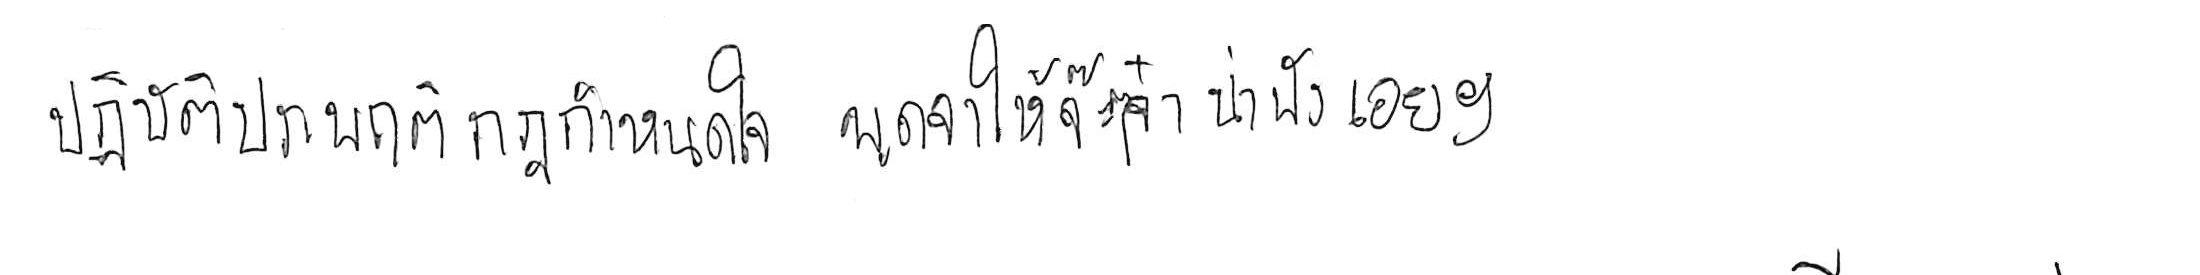 ปฏิบัติประพฤติกฎกำหนดใจ พูดจาให้จ๊ะจ๋า น่าฟังเอยฯ